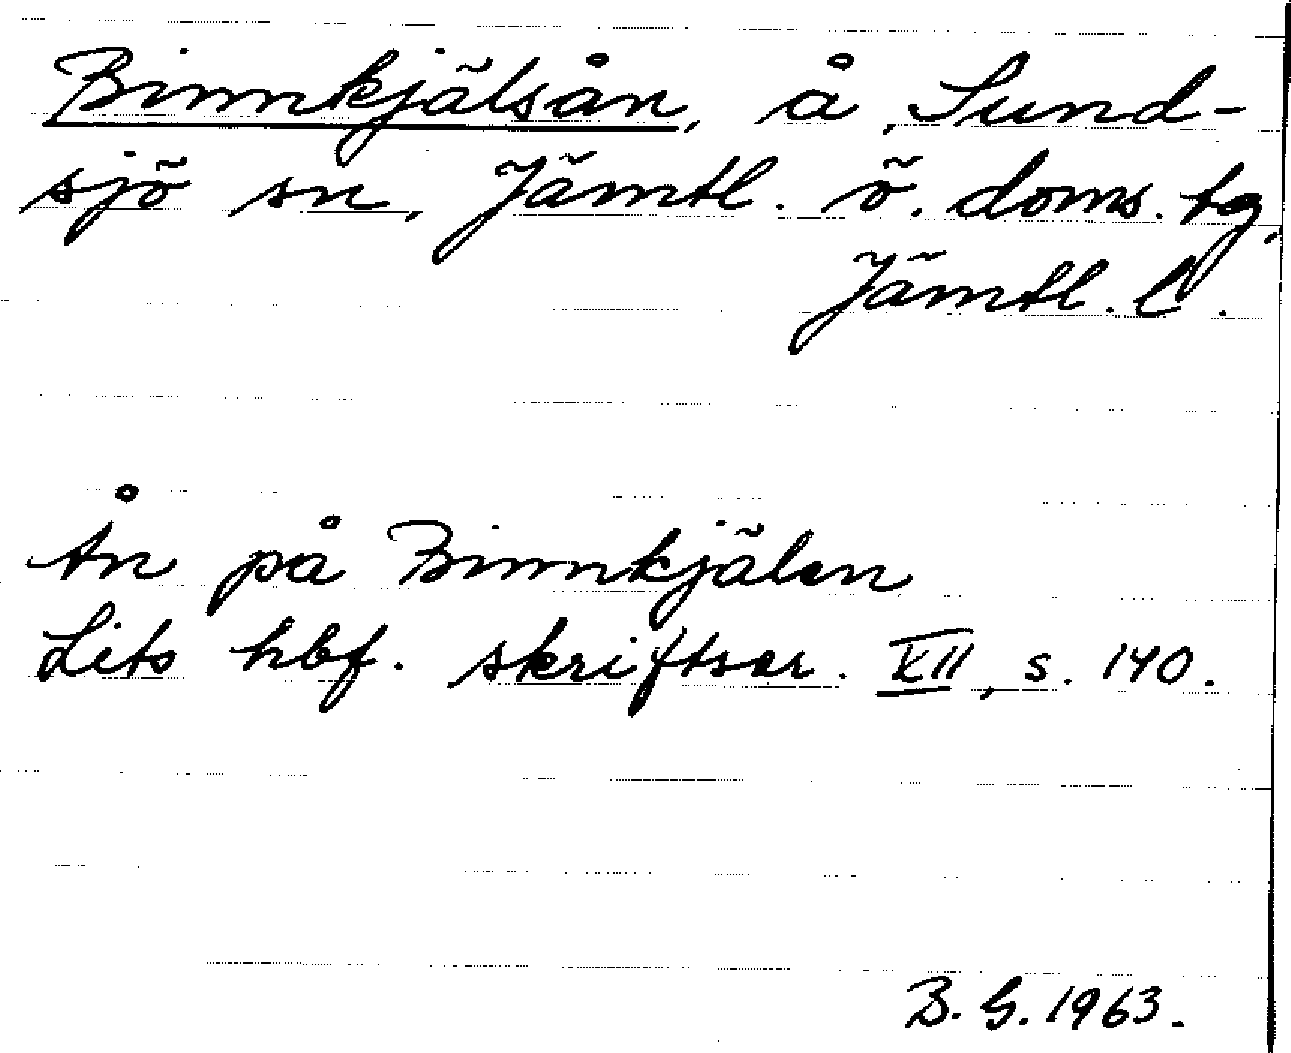 Binnkjälsån, å, Sund-
sjö sn, Jämtl. ö. doms. tg,
Jämtl. l.
Ån på Binnkjälen
Lits hbf. skriftser. VII, s. 140.
B. G. 1963.